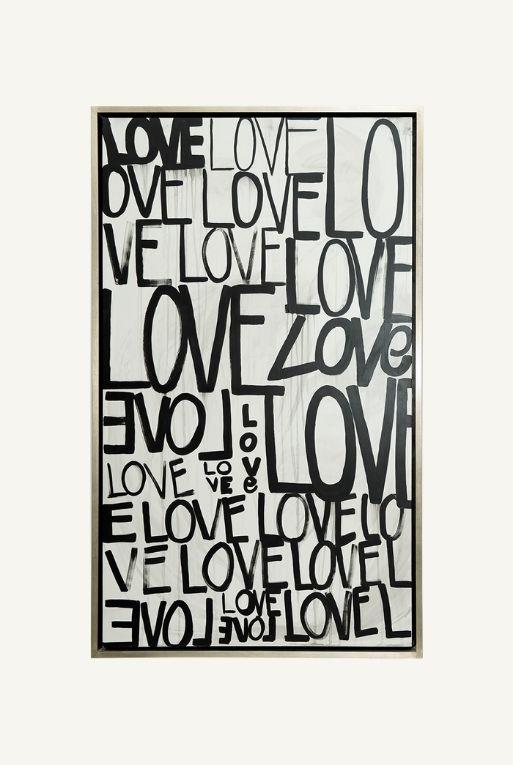 LOVE LOVE LO
OVE LOVE
VE LOVE LOVE
LOVE LOVE
LOVE LOVE LOVE
LOVE LO
VE
E LOVE LOVE LO
VE LOVE LOVE L
LOVE LOVE LOVE L
LOVE